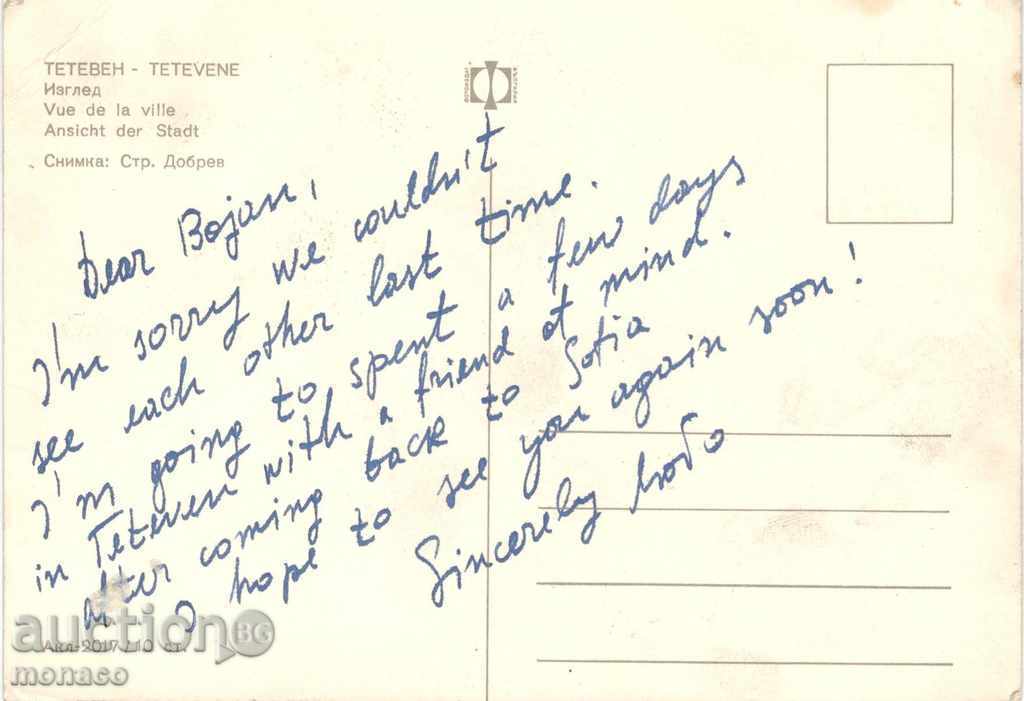 ТЕТЕВЕН - TETEVENE
Изглед
Vue de la ville
Ansicht der Stadt
Снимка: Стр. Добрев
Dear Bojan,
I'm sorry we couldn't
see each other last time.
I'm going to spent a few days
in Teteven with a friend of mind.
After coming back to Sofia
I hope to see you again soon!
Sincerely
Акл-2017/10 ст.
auctionBG
monaco